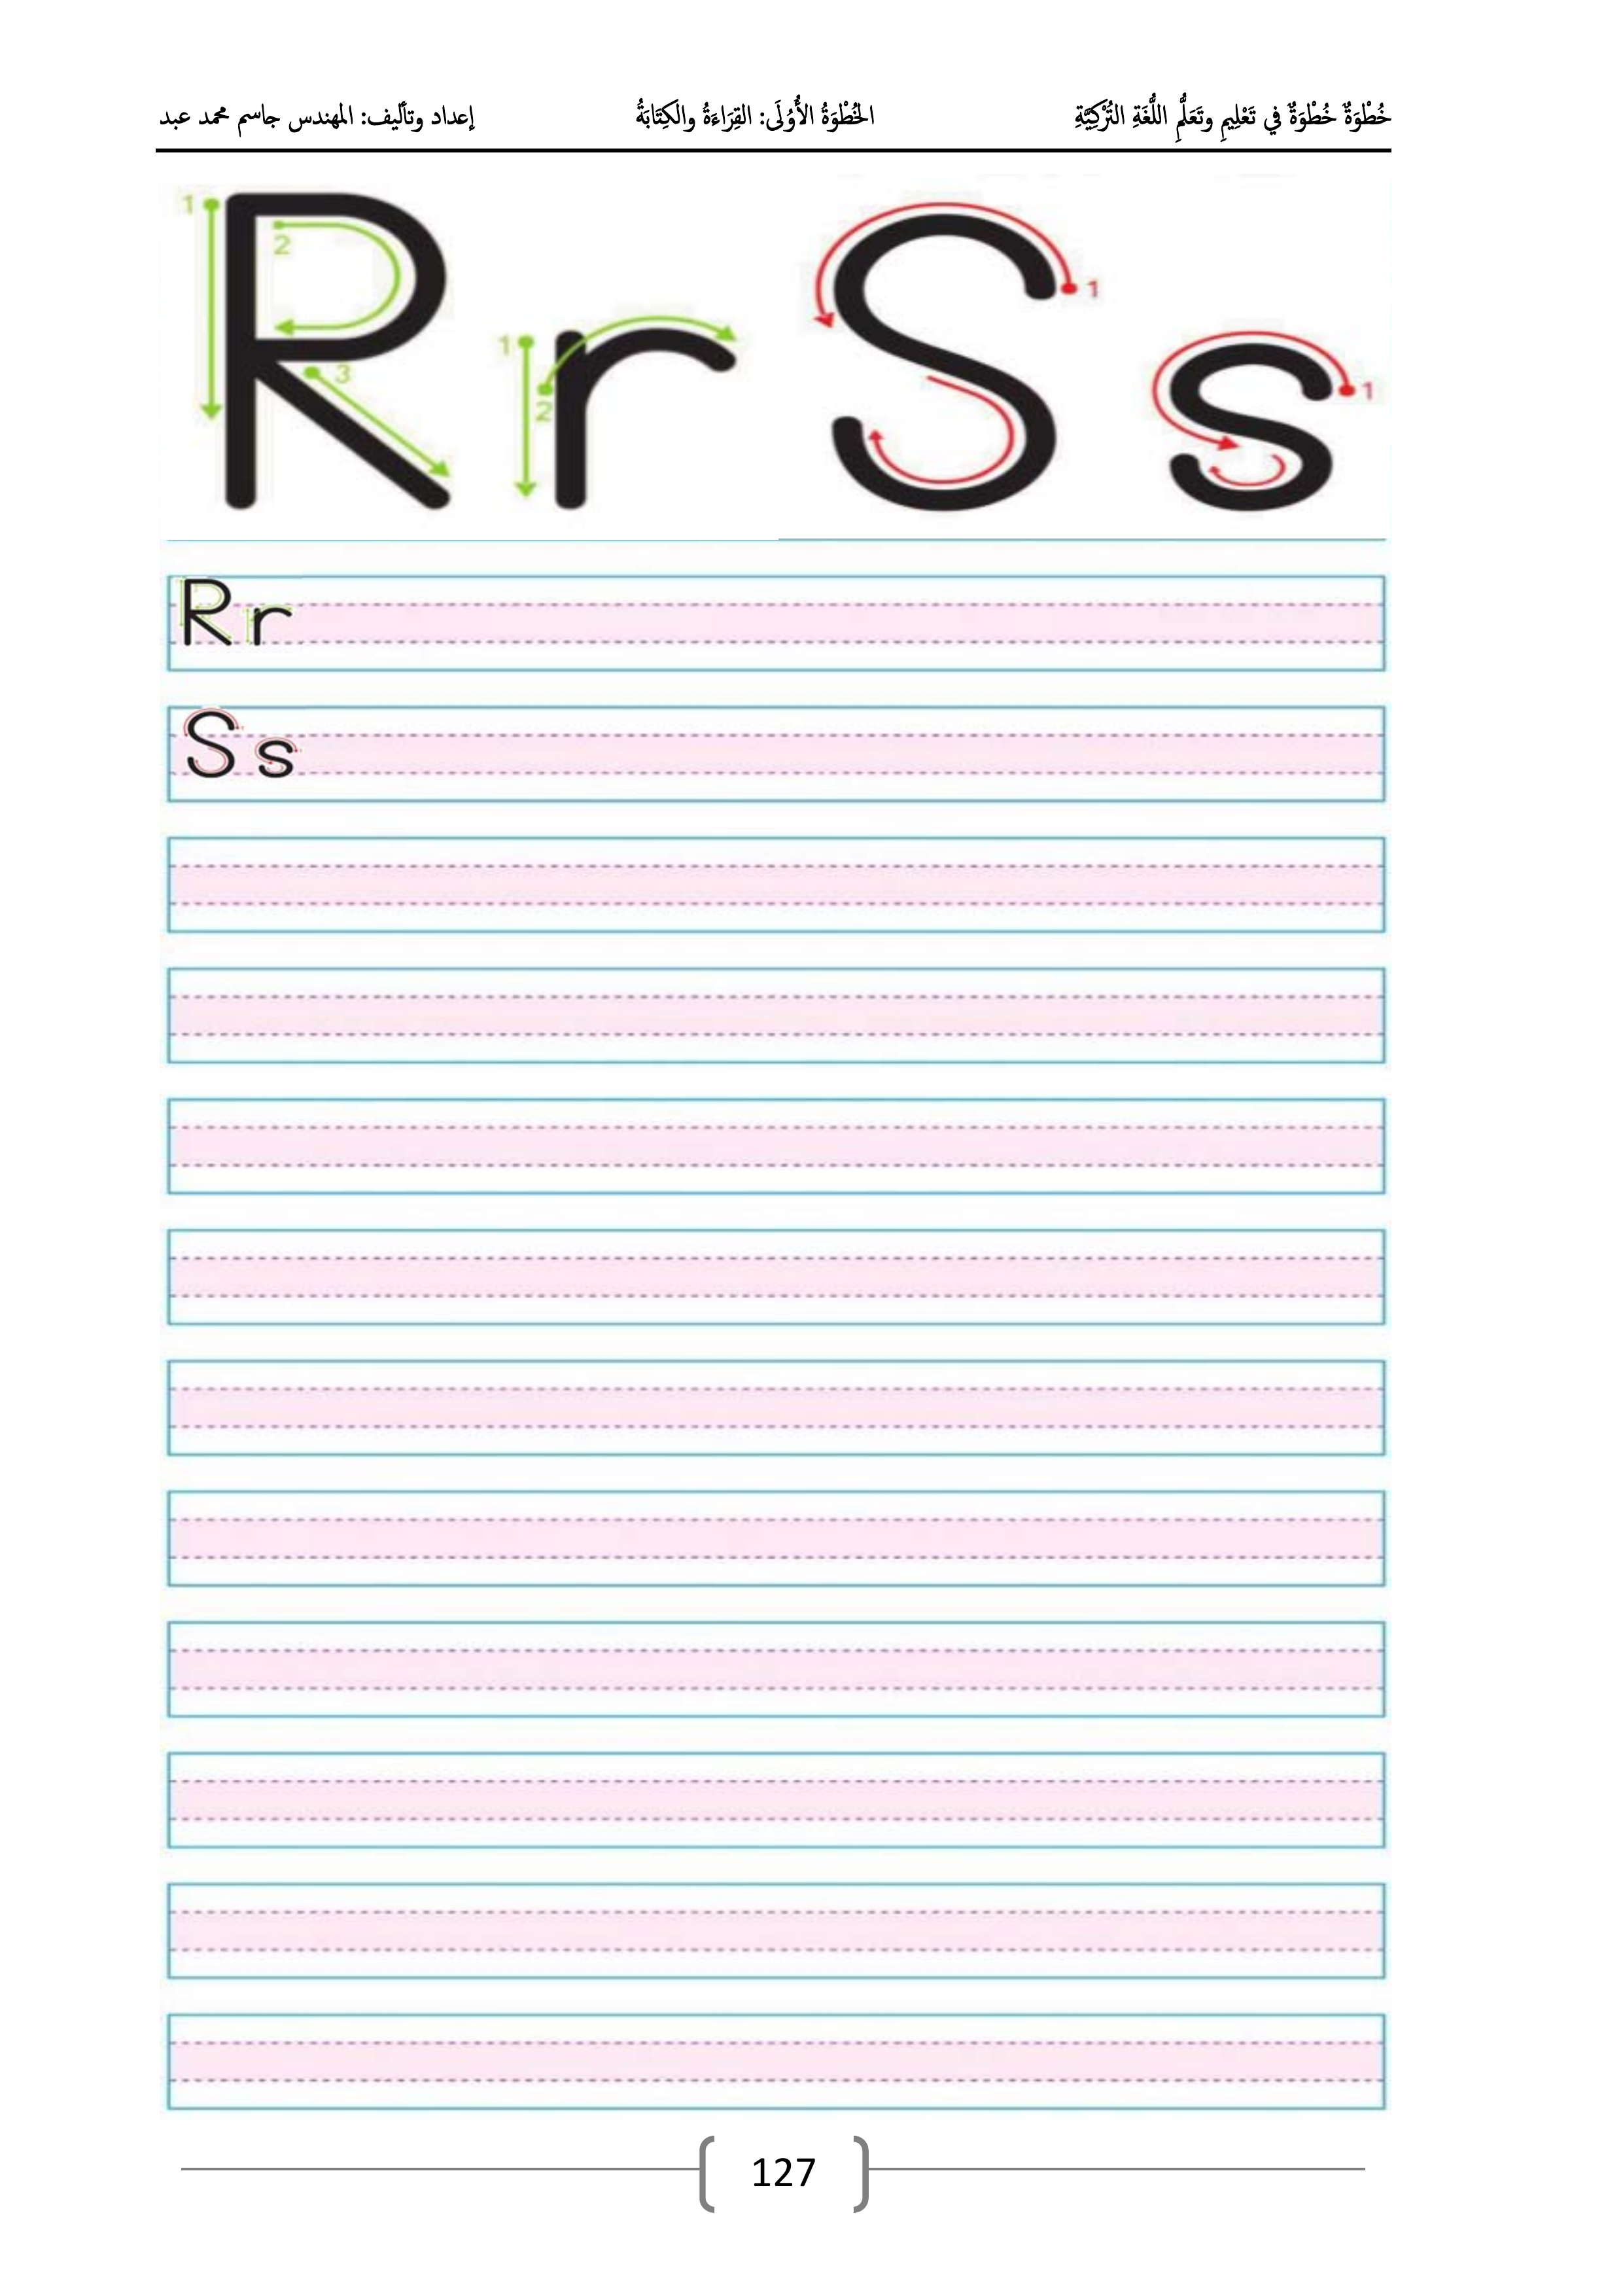 خُطْوَةٌ خُطْوَةٌ في تَعْلِيمِ وتَعَلُّمِ اللُّغَةِ التُّرْكِيَّةِ الخُطْوَةُ الأُوْلَى: القِرَاءَةُ والكِتَابَةُ إعداد وتأليف: المهندس جاسم محمد عبد
R r S s
1 2 3 1 2 1 1
R r
S s
127